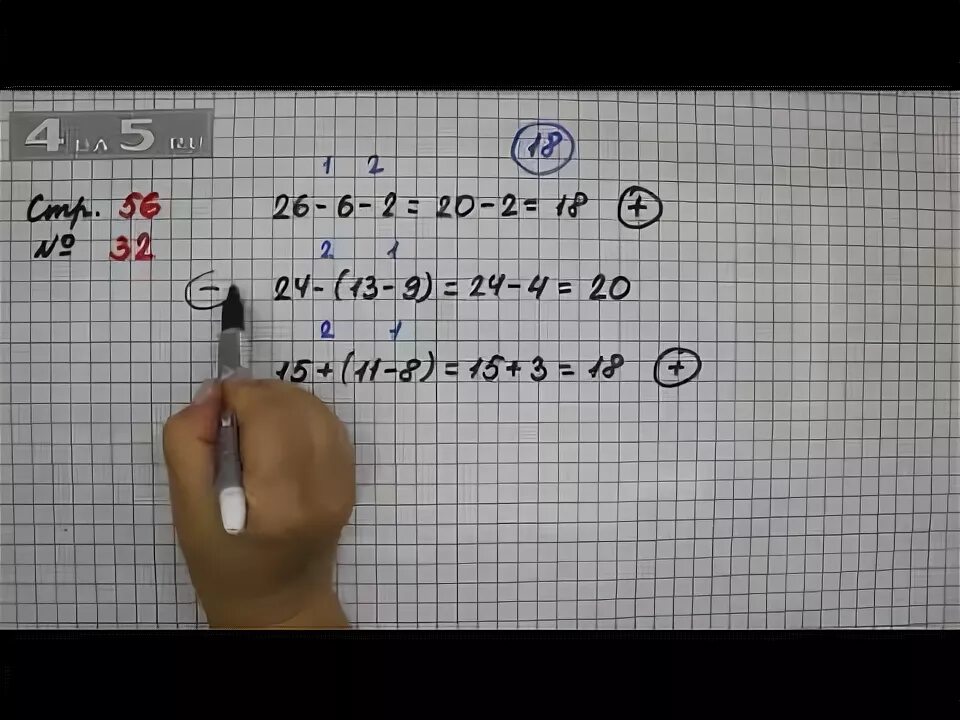 4 НА 5 RU
18
1 2
Стр. 56
26 - 6 - 2 = 20 - 2 = 18 +
№ 32
2 1
- 24 - (13 - 9) = 24 - 4 = 20
2 1
15 + (11 - 8) = 15 + 3 = 18 +